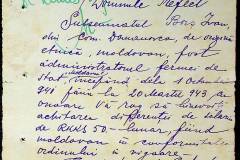 Domnule Prefect
Subsemnatul Pons Ivan,
din Com. Domanovca, de origină
etnică moldovan, fost
administratorul fermei de
stat începând dela 1 Octombrie
941 până la 20 Martie 943 cu
onoare Vă rog să binevoiți
achitarea diferenței de salariu
de RKKS 50.- lunar, fiind
moldovan în conformitate
ordinului în vigoare.